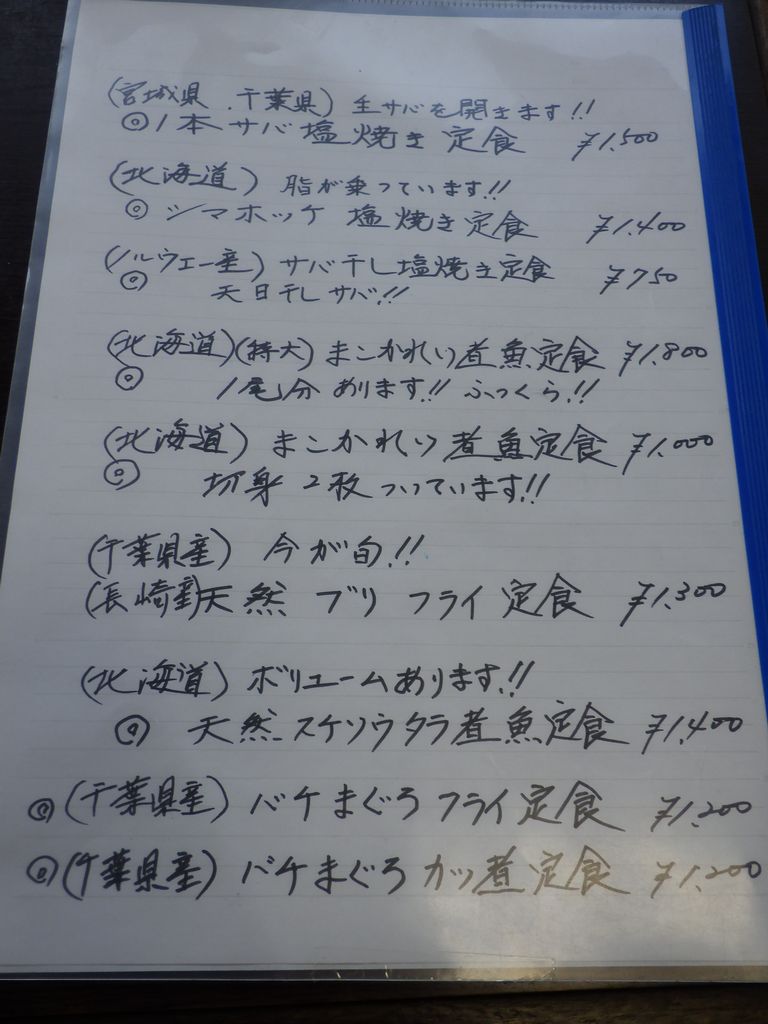 (宮城県.千葉県)生サバを開きます!!
◎1本サバ塩焼き定食 ¥1,500
(北海道)脂が乗っています!!
◎シマホッケ塩焼き定食 ¥1,400
(ノルウェー産)サバ干し塩焼き定食 ¥750
◎天日干しサバ!!
(北海道)(特大)まこかれい煮魚定食 ¥1,800
◎1尾分あります!!ふっくら!!
(北海道)まこかれい煮魚定食 ¥1,000
◎切身2枚ついています!!
(千葉県産)今が旬!!
(長崎産)天然ブリフライ定食 ¥1,300
(北海道)ボリュームあります!!
◎天然スケソウタラ煮魚定食 ¥1,400
◎(千葉県産)バチまぐろフライ定食 ¥1,200
◎(千葉県産)バチまぐろカツ煮定食 ¥1,200